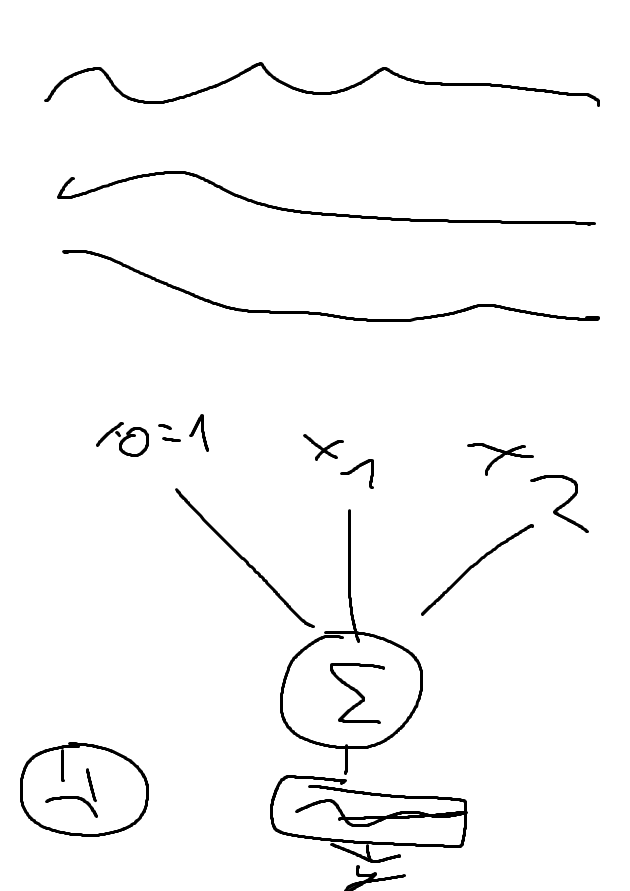 x0=1 x1 x2
Σ
y